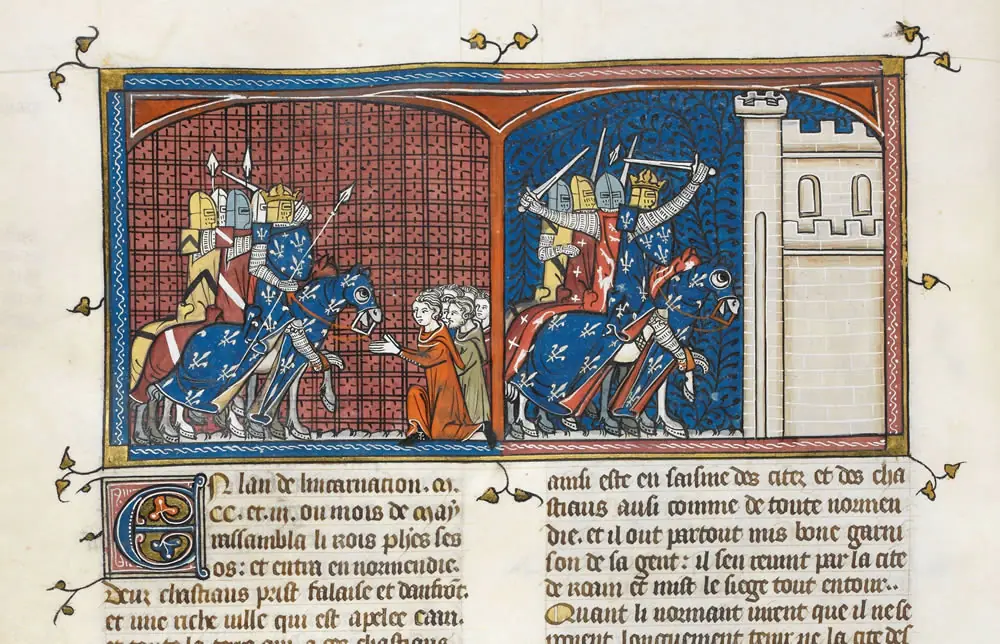 En lan de lincarnation. m.
CC. et. iii. ou mois de may
rassambla li rois phes ses
os: et entra en normendie.
Deux chastiaus prist falaise et danfront.
et une riche ville qui est apelee caan.
et toute la terre qui a ces chastiaus
ainsi este en saisine des citez et des cha
stiaus ausi comme de toute normen
die. et il out partout mis bone garni
son de sa gent: il sen revint par la cite
de roan et mist le siege tout entour..
Quant li normant virent que il ne se
porent longuement tenir la cite des